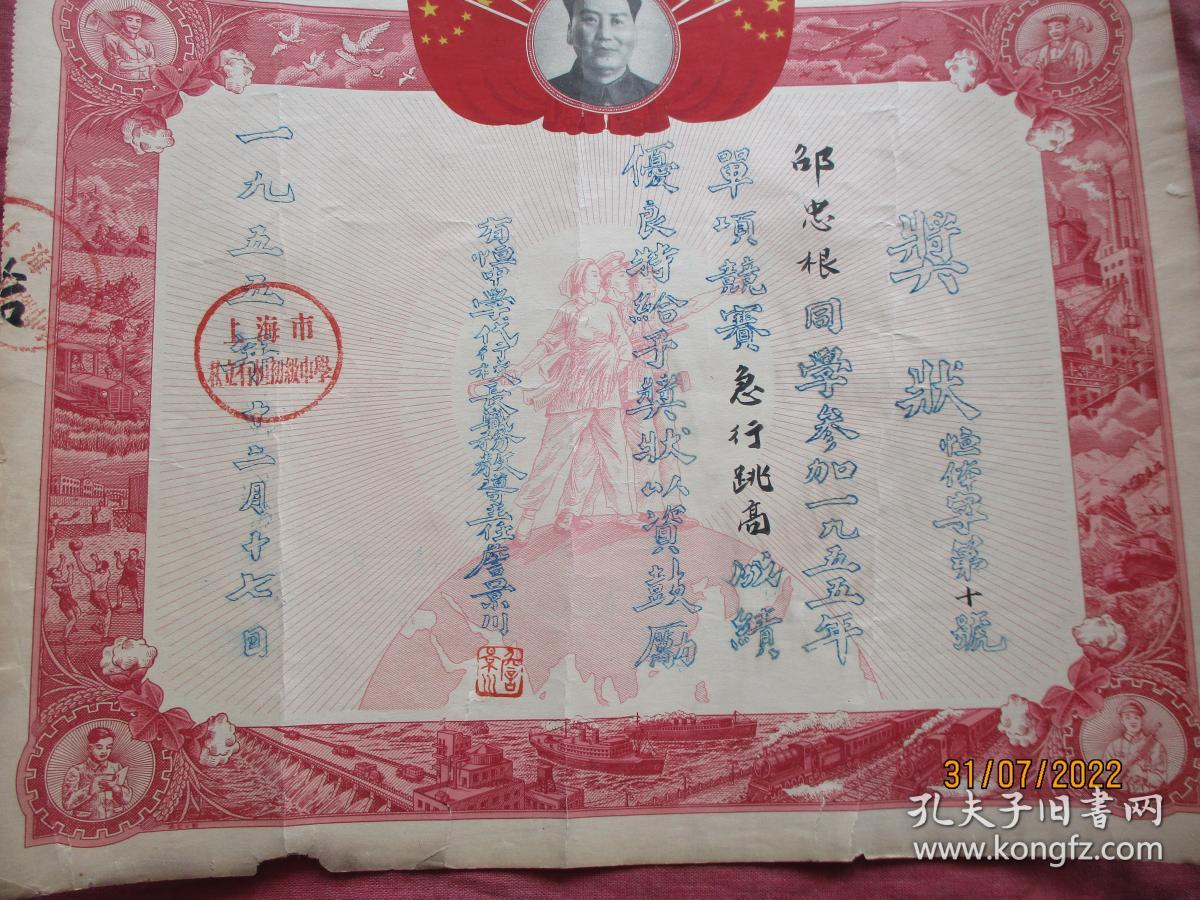 獎狀
恒体字第十號
邵忠根同學參加一九五五年
單項競賽急行跳高成績
優良特給予獎狀以資鼓勵
有恒中學代行校長職務教導主任詹景川
詹景川
一九五五年十二月十七日
上海市
私立有恒初級中學
31/07/2022
孔夫子旧书网
www.kongfz.com